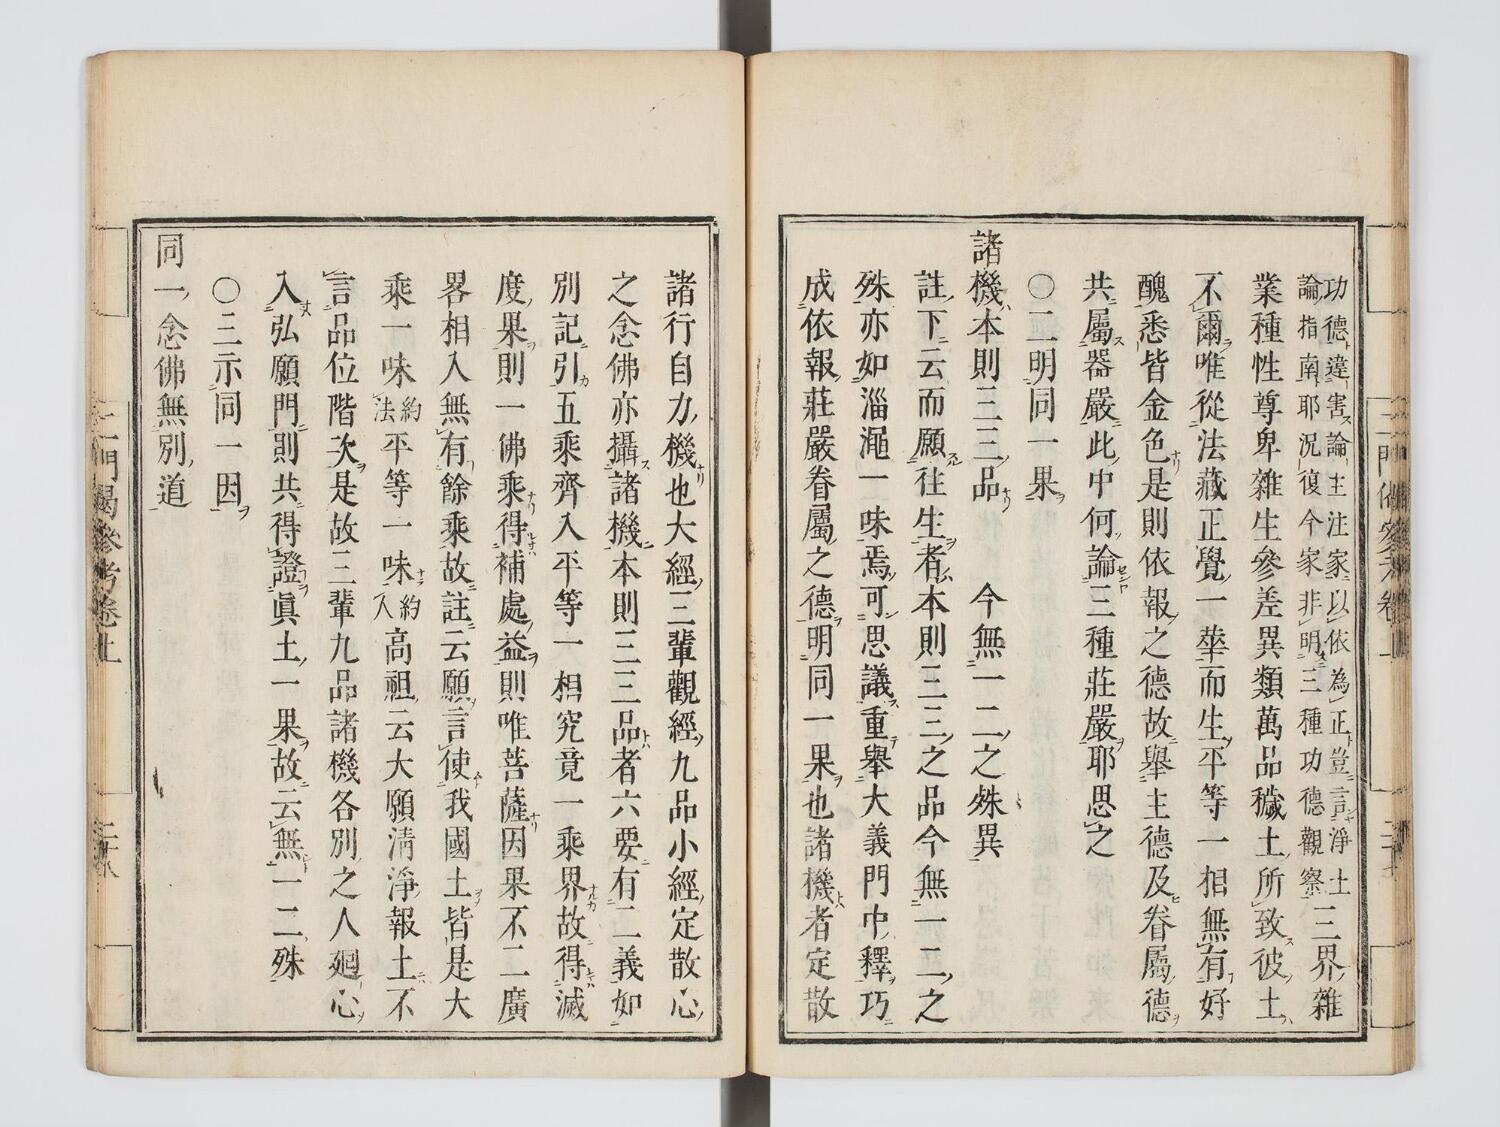 功德違害論主注家以依為正豈言淨土
論指南耶況復今家非明三種功德觀察
三界雜
業種性尊卑雜生參差異類萬品穢土所致彼土
不爾唯從法藏正覺一華而生平等一相無有好
醜悉皆金色是則依報之德故舉主德及眷屬德
共屬器嚴此中何論三種莊嚴耶思之
〇二明同一果
諸機本則三三品　今無一二之殊異
註下云而願往生者本則三三之品今無一二之
殊亦如淄澠一味焉可思議重舉大義門中釋巧
成依報莊嚴眷屬之德明同一果也諸機者定散
諸行自力機也大經三輩觀經九品小經定散心
之念佛亦攝諸機本則三三品者六要有二義如
別記引五乘齊入平等一相究竟一乘界故得滅
度果則一佛乘得補處益則唯菩薩因果不二廣
畧相入無有餘乘故註云願言使我國土皆是大
乘一味約法平等一味約人高祖云大願清淨報土不
言品位階次是故三輩九品諸機各別之人廻心
入弘願門則共得證眞土一果故云無一二殊
〇三示同一因
同一念佛無別道
三門偈參考卷上
二十八